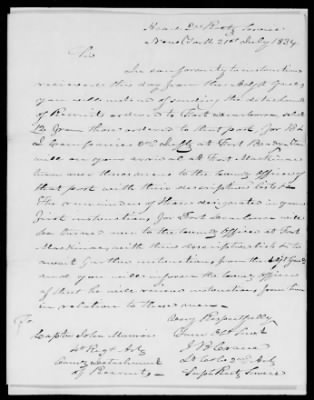 Head Qrs Rectg Service
New York 21st July 1834
Sir
In conformity to instructions
received this day from the Adjt Genl,
you will instead of sending the detachment
of Recruits ordered to Fort
from those ordered to that post, for
Companies 2nd Infty at Fort
will on your arrival at Fort Mackinac
turn over these men to the Comg officer of
that post with their descriptive lists
The remainder of those designated in your
first instructions for Fort will
be turned over to the Comg officer at Fort
Mackinac, with their descriptive lists to
await further instructions from the Adjt Genl
and you will inform the Comg officer
that he will receive instructions from him
in relation to these men
Very Respectfully
Your Obt Servt
J B Crane
Lt Col 2nd Arty
Supt Rectg Service
To
Captn John Munroe
4th Regt Arty
Comg Detachment
of Recruits